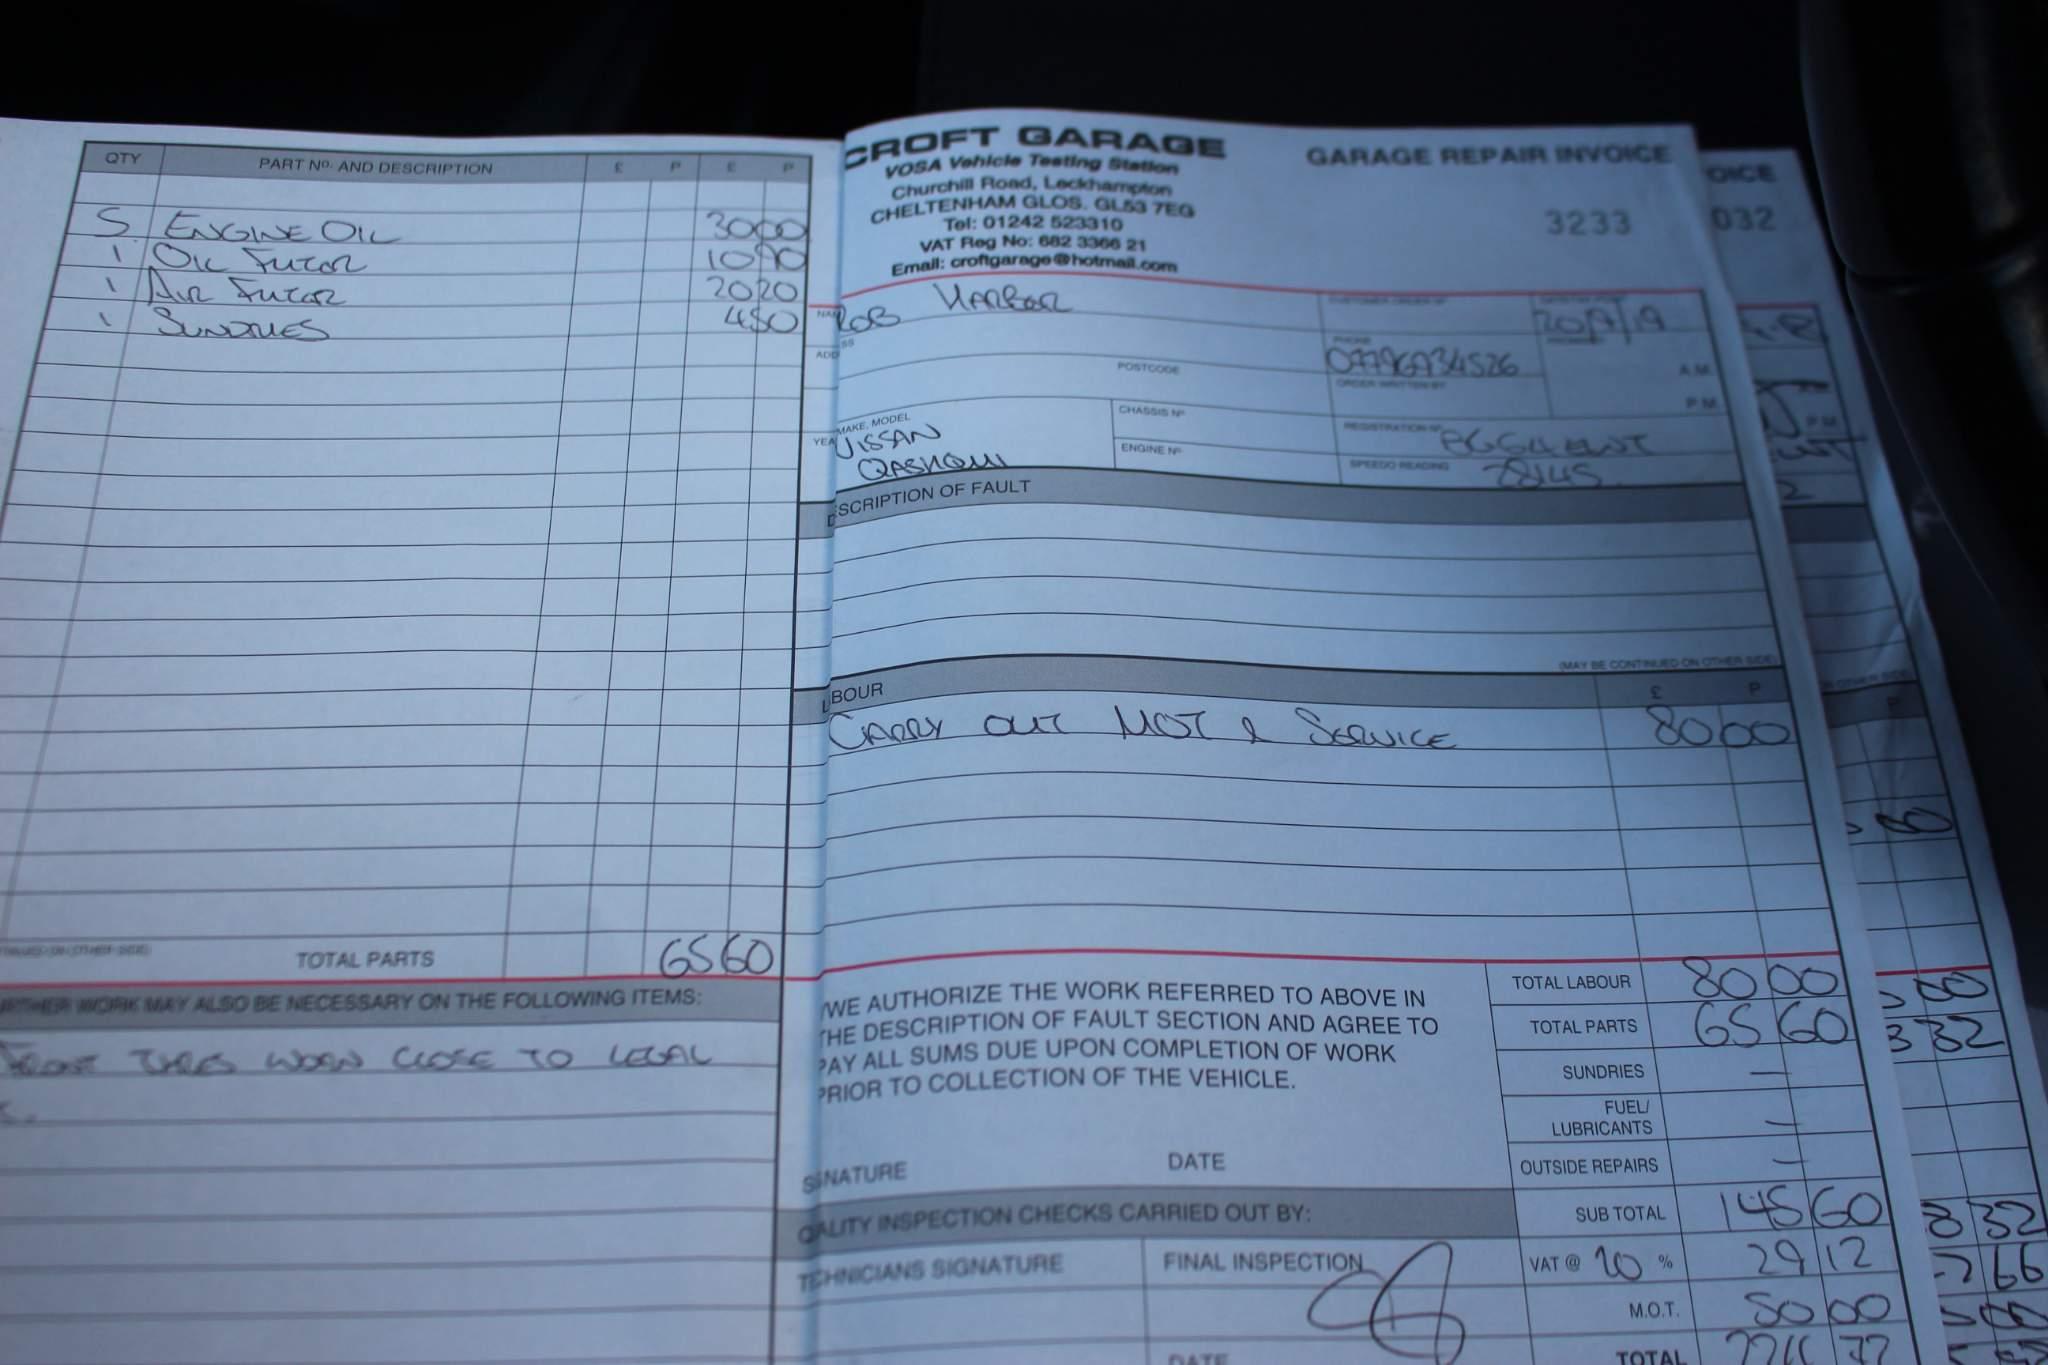 QTY PART No. AND DESCRIPTION £ P £ P
5 ENGINE OIL 30 00
1 OIL FILTER 10 90
1 AIR FILTER 20 20
1 SUNDRIES 4 50
TOTAL PARTS 65 60
WORK MAY ALSO BE NECESSARY ON THE FOLLOWING ITEMS:
FRONT TYRES WORN CLOSE TO LEGAL
CROFT GARAGE
VOSA Vehicle Testing Station
Churchill Road, Leckhampton
CHELTENHAM GLOS. GL53 7EG
Tel: 01242 523310
VAT Reg No: 682 3366 21
Email: croftgarage@hotmail.com
GARAGE REPAIR INVOICE
3233
ROB HARBOR
PHONE
ADD SS
POSTCODE
ORDER WRITTEN BY
A.M.
P.M.
YEA MAKE, MODEL
NISSAN
QASHQAI
CHASSIS No
ENGINE No
REGISTRATION No
SPEEDO READING 28145
DESCRIPTION OF FAULT
(MAY BE CONTINUED ON OTHER SIDE)
LABOUR £ P
CARRY OUT MOT & SERVICE 80 00
I/WE AUTHORIZE THE WORK REFERRED TO ABOVE IN
THE DESCRIPTION OF FAULT SECTION AND AGREE TO
PAY ALL SUMS DUE UPON COMPLETION OF WORK
PRIOR TO COLLECTION OF THE VEHICLE.
SIGNATURE DATE
QUALITY INSPECTION CHECKS CARRIED OUT BY:
TECHNICIANS SIGNATURE FINAL INSPECTION
DATE
TOTAL LABOUR 80 00
TOTAL PARTS 65 60
SUNDRIES —
FUEL/
LUBRICANTS —
OUTSIDE REPAIRS —
SUB TOTAL 145 60
VAT @ 20 % 29 12
M.O.T. 50 00
TOTAL
OICE
032
P.M.
P
8 32
66